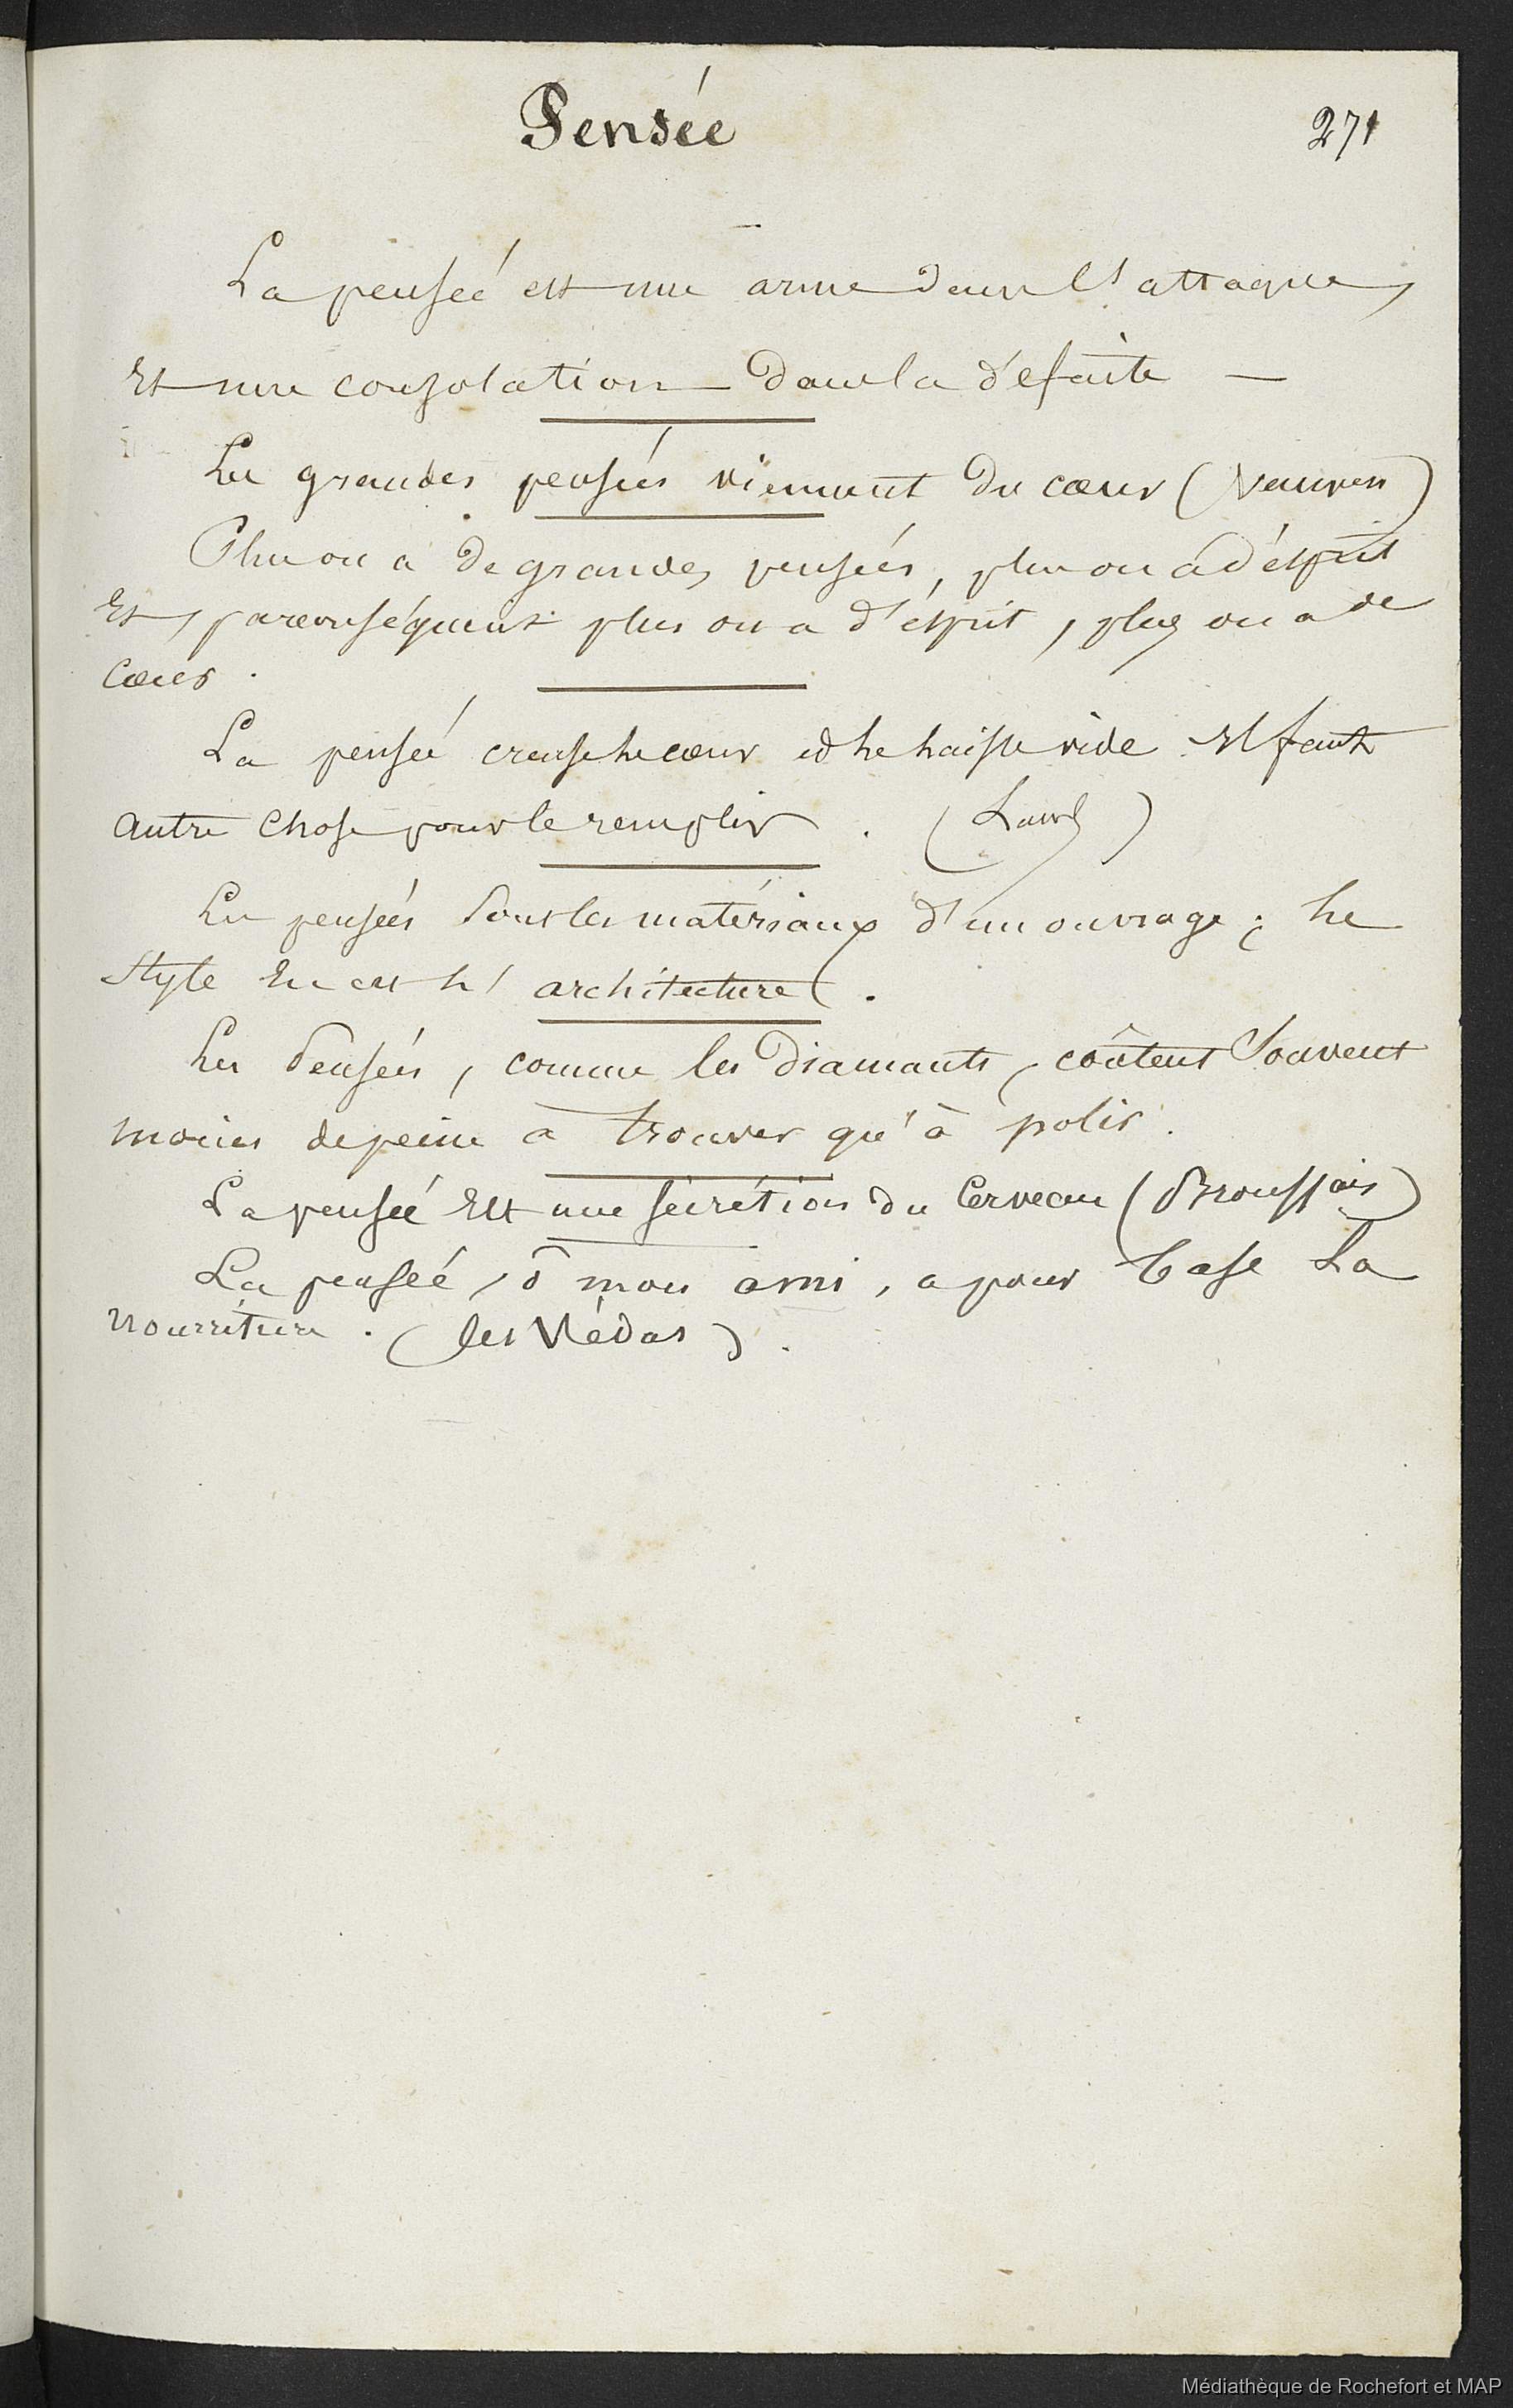 Pensée
271
La pensée est une arme dans l'attaque,
Et une consolation dans la défaite —
Les grandes pensées viennent du cœur (Vauven)
Plus on a de grandes pensées, plus on a d'esprit
Et, par conséquent plus on a d'esprit, plus on a de
Cœur.
La pensée creuse le cœur et le laisse vide Il faut
autre chose pour le remplir. ( )
Les pensées sont les matériaux d'un ouvrage ; le
Style En est l'architecture.
Les Pensées, comme les Diamants, coûtent Souvent
moins de peine à trouver qu'à polir.
La pensée Est une sécrétion du Cerveau (Broussais)
La pensée, ô mon ami, a pour base La
Nourriture. (les Védas).
Médiathèque de Rochefort et MAP